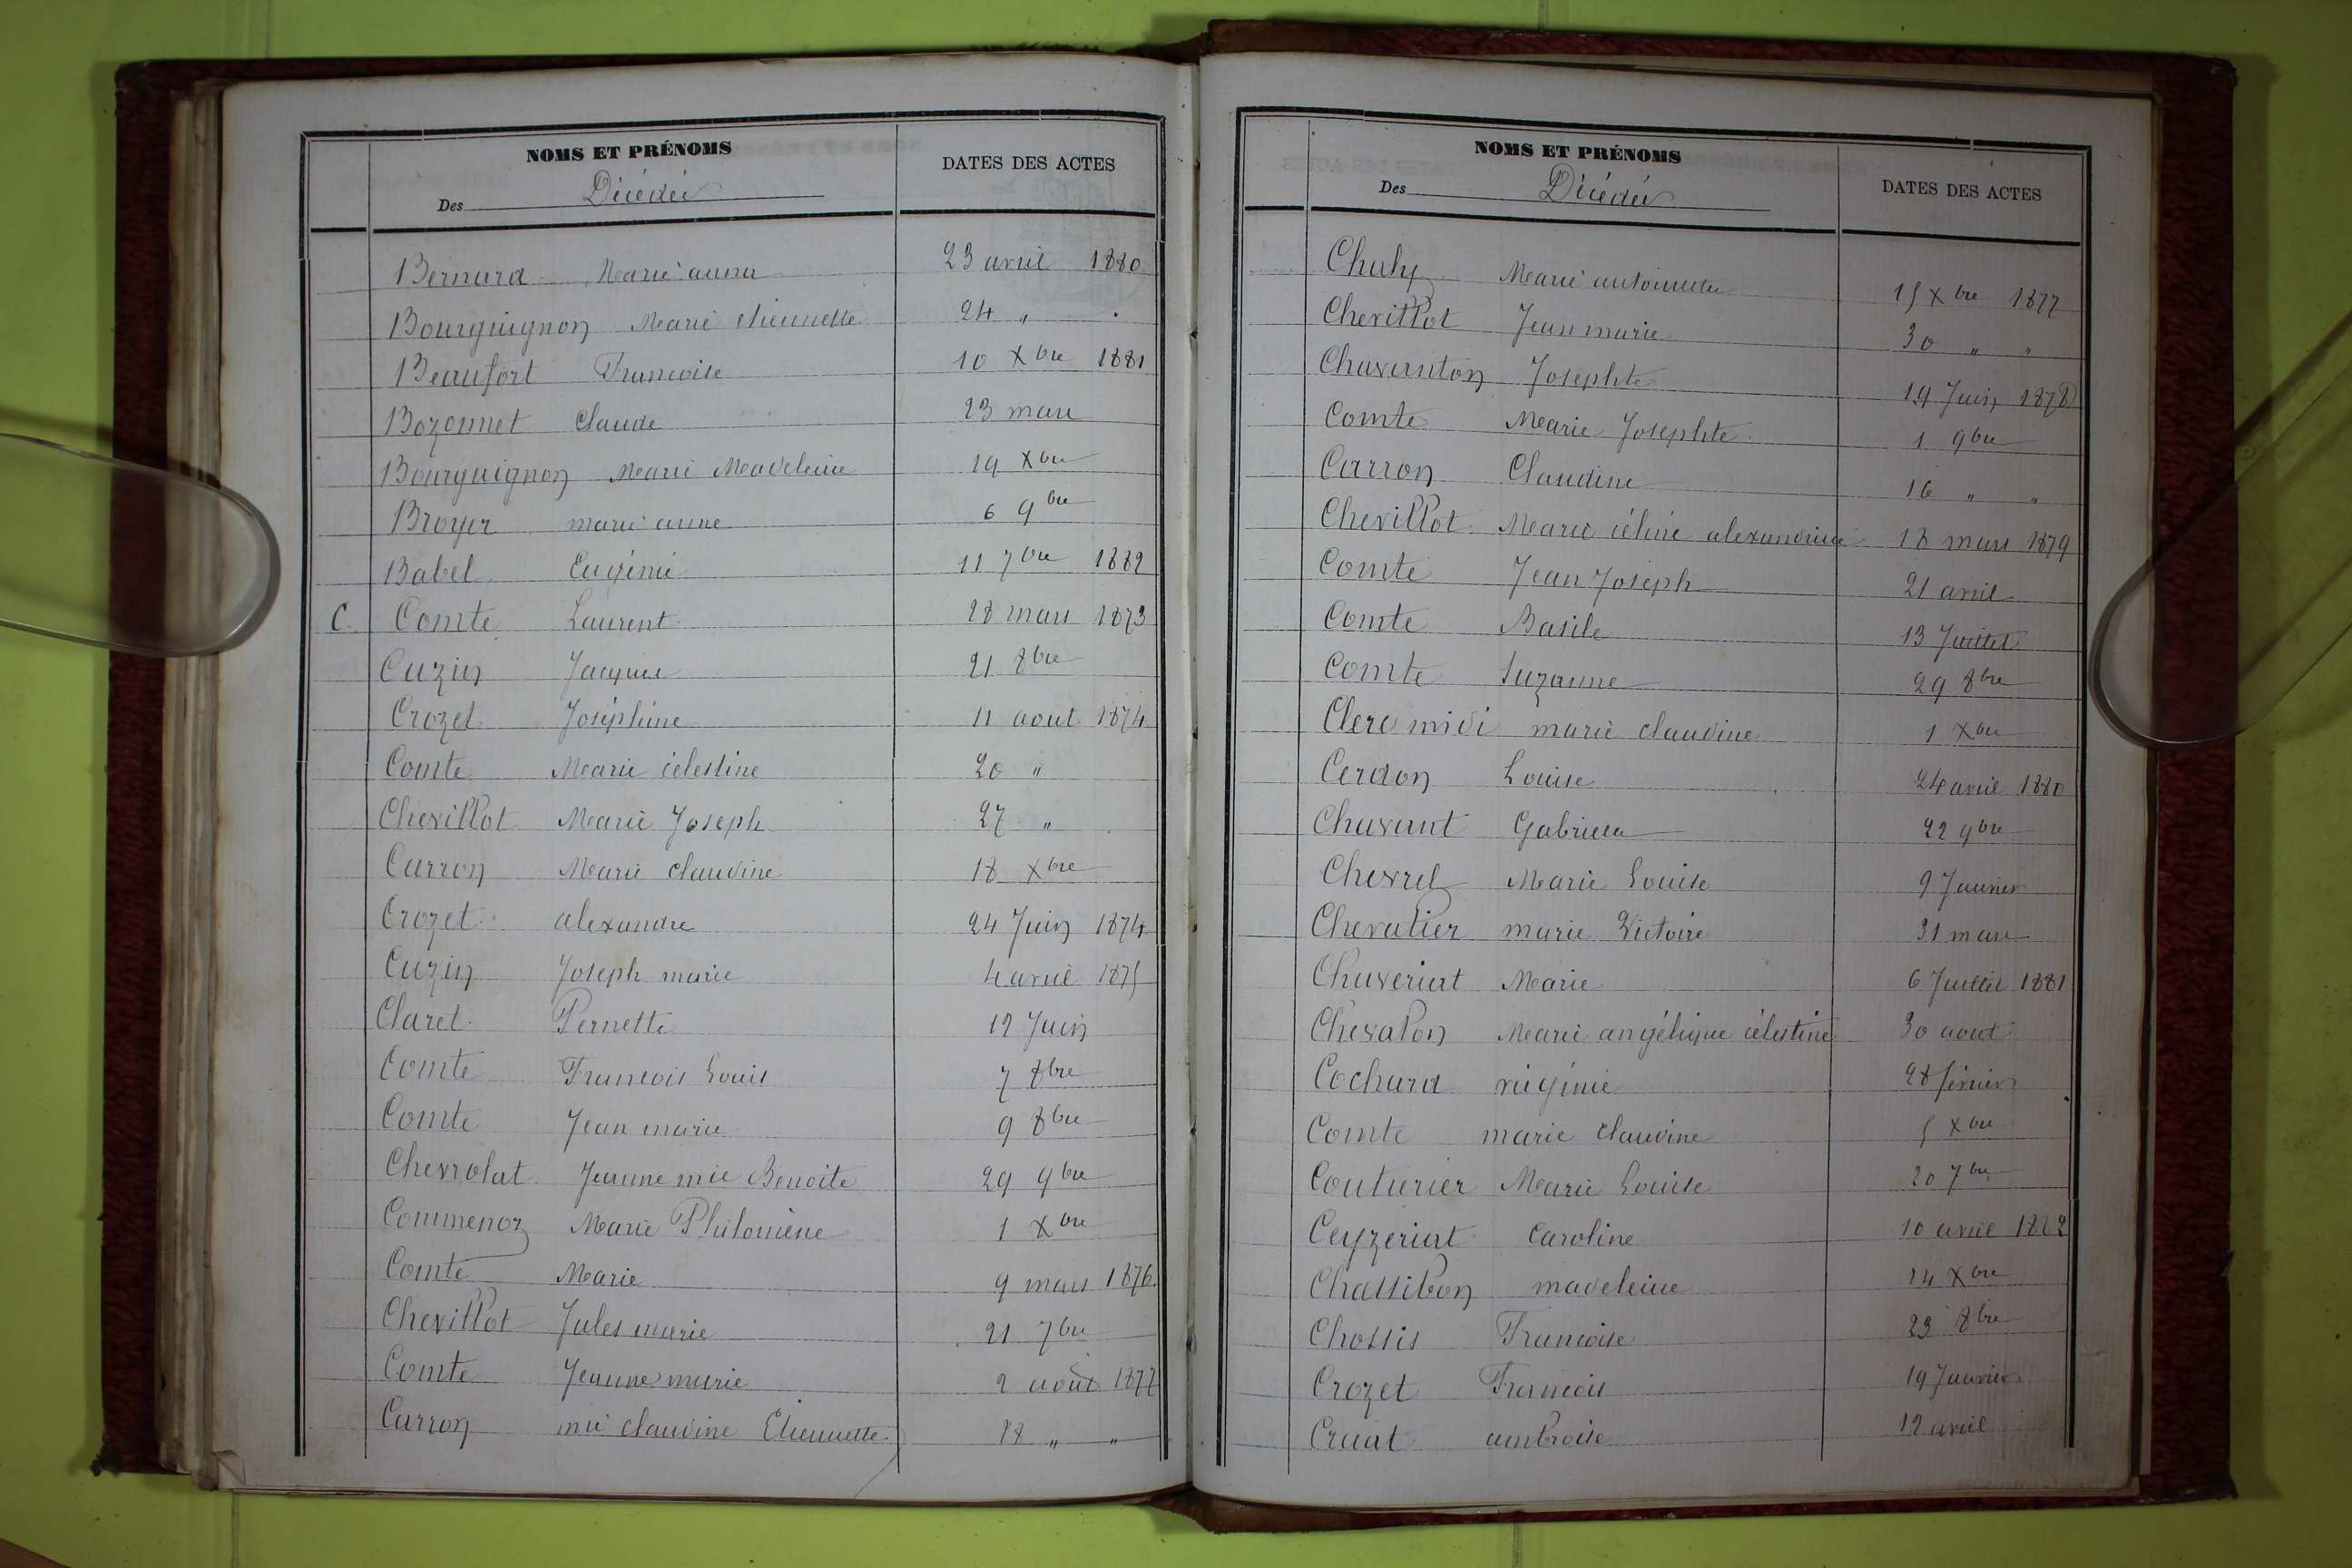 NOMS ET PRÉNOMS
DATES DES ACTES
Des Décédés
Bernard Marie anna 23 avril 1880
Bourguignon Marie etiennette 24 "
Beaufort Francoise 10 Xbre 1881
Bozonnet Claude 23 mars
Bourguignon Marie Madeleine 19 Xbre
Broyer marie anne 6 9bre
Babel Eugénie 11 7bre 1882
C. Comte Laurent 28 mars 1873
Cuzin Jacques 21 8bre
Crozet Joséphine 11 aout 1874
Comte Marie célestine 20 "
Chevillot Marie Joseph 27 "
Carron Marie claudine 18 Xbre
Crozet alexandre 24 Juin 1874
Cuzin Joseph marie 4 avril 1875
Claret Pernette 12 Juin
Comte Francois Louis 7 8bre
Comte Jean marie 9 8bre
Chevrolat Jeanne mie Benoite 29 9bre
Commenoz Marie Philomène 1 Xbre
Comte Marie 9 mars 1876.
Chevillot Jules marie 21 7bre
Comte Jeanne marie 2 août 1877
Carron mie claudine Etiennette 18 " "
NOMS ET PRÉNOMS
DATES DES ACTES
Des Décédés
Chaly Marie antoinette 15 Xbre 1877
Chevillot Jean marie 30 " "
Chavanton Josephte 19 Juin 1878
Comte Marie Josephte 1 9bre
Carron Claudine 16 " "
Chevillot Marie céline alexandrine 18 mars 1879
Comte Jean Joseph 21 avril
Comte Basile 13 Juillet
Comte Suzanne 29 8bre
Clerc midi marie claudine 1 Xbre
Cerdon Louise 24 avril 1880
Chavant Gabriella 22 9bre
Chevrel Marie Louise 9 Janvier
Chevalier marie Victoire 31 mars
Chaveriat Marie 6 Juillet 1881
Chevalon Marie angélique célestine 30 aout
Cochard virginie 28 février
Comte marie claudine 5 Xbre
Couturier Marie Louise 20 7bre
Ceyzeriat Caroline 10 avril 1882
Chassibon madeleine 14 Xbre
Chossis Francoise 23 8bre
Crozet Francois 19 Janvier
Cruat ambroise 12 avril